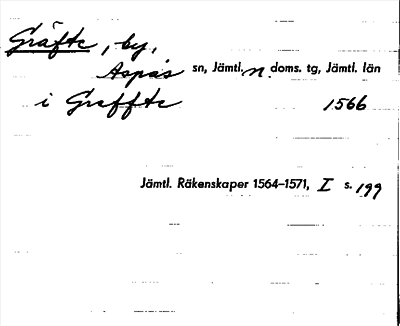 Gräfte, by,
Aspås sn, Jämtl. n. doms. tg, Jämtl. län
i Graffte 1566
Jämtl. Räkenskaper 1564–1571, I s. 199